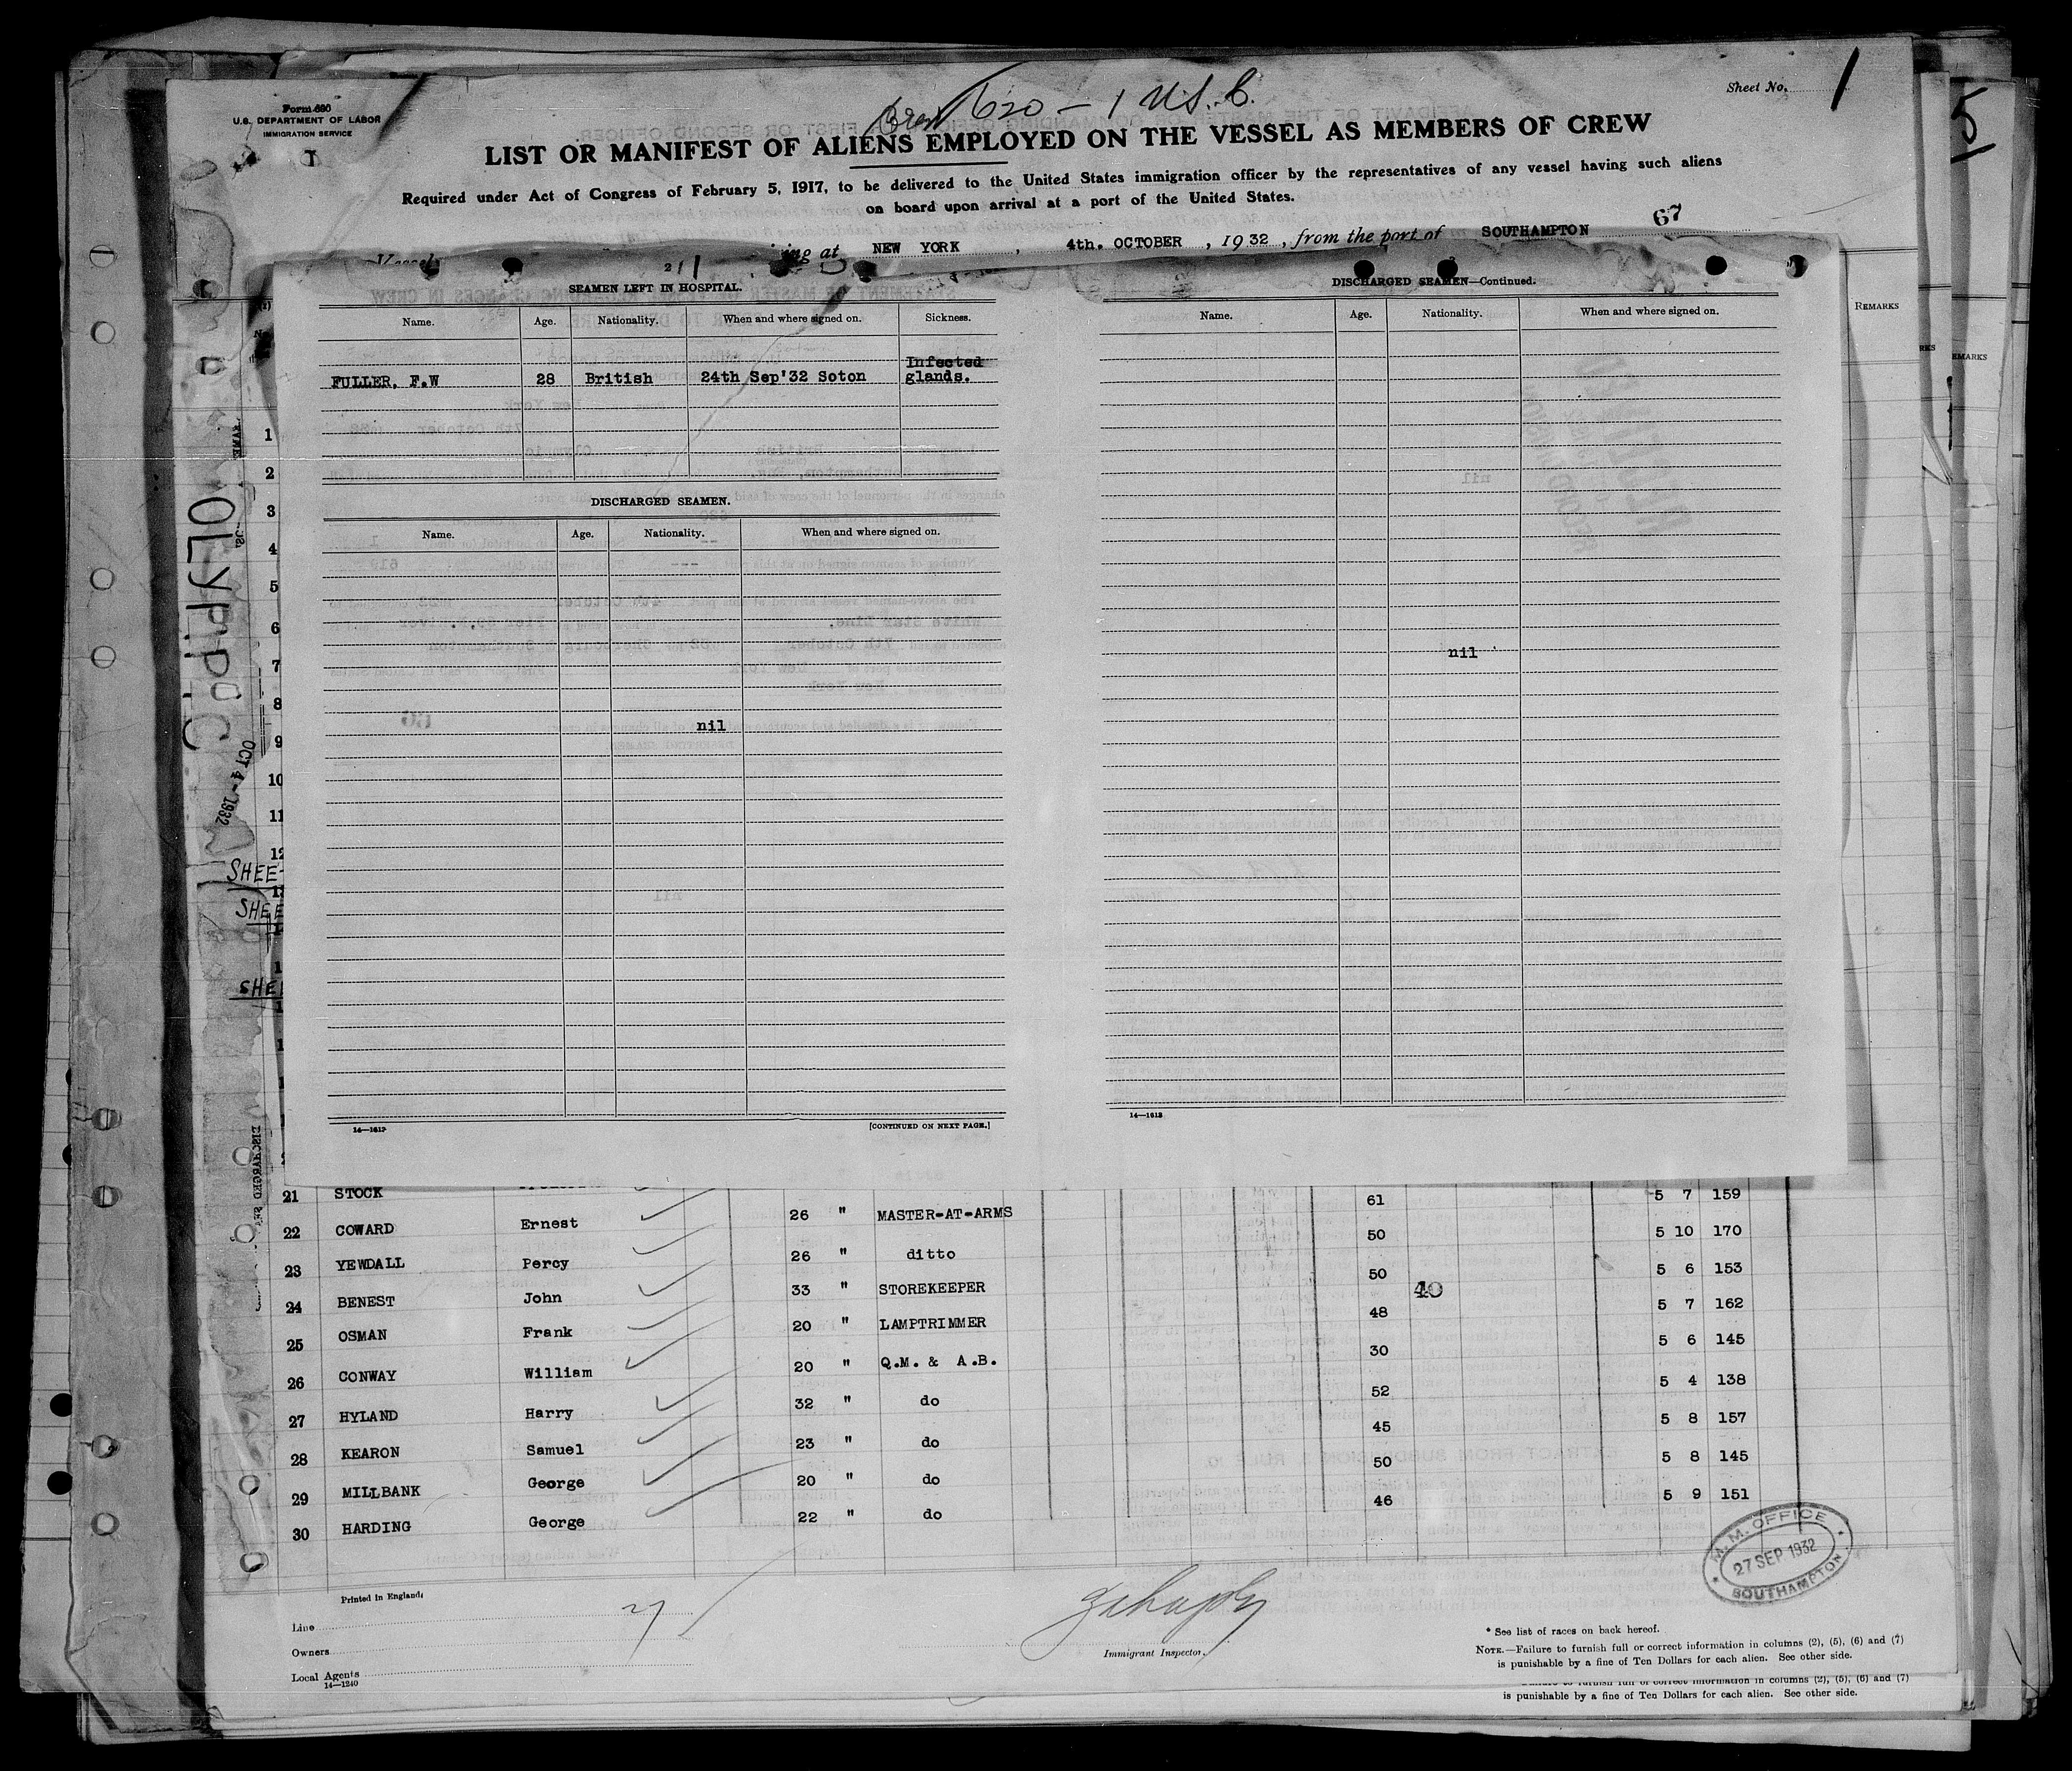 Form 680
U.S. DEPARTMENT OF LABOR
IMMIGRATION SERVICE
Sheet No. 1
5
620 – 1 U.S.C.
LIST OR MANIFEST OF ALIENS EMPLOYED ON THE VESSEL AS MEMBERS OF CREW
Required under Act of Congress of February 5, 1917, to be delivered to the United States immigration officer by the representatives of any vessel having such aliens
on board upon arrival at a port of the United States.
Vessel ing at NEW YORK , 4th. OCTOBER , 1932 , from the port of SOUTHAMPTON 67
2
SEAMEN LEFT IN HOSPITAL.
Name. Age. Nationality. When and where signed on. Sickness.
FULLER, F.W 28 British 24th Sep'32 Soton Infected
glands.
DISCHARGED SEAMEN.
Name. Age. Nationality. When and where signed on.
nil
14—1613 [CONTINUED ON NEXT PAGE.]
DISCHARGED SEAMEN—Continued.
Name. Age. Nationality. When and where signed on.
nil
14—1613
REMARKS
EMARKS
OLYMPIC
OCT 4 - 1932
SHEE
SHEE
SHE
1
2
3
4
5
6
7
8
9
10
11
12
21 STOCK 61 5 7 159
22 COWARD Ernest 26 " MASTER-AT-ARMS 50 5 10 170
23 YEWDALL Percy 26 " ditto 50 5 6 153
24 BENEST John 33 " STOREKEEPER 48 5 7 162
40
25 OSMAN Frank 20 " LAMPTRIMMER 30 5 6 145
26 CONWAY William 20 " Q.M. & A.B. 52 5 4 138
27 HYLAND Harry 32 " do 45 5 8 157
28 KEARON Samuel 23 " do 50 5 8 145
29 MILLBANK George 20 " do 46 5 9 151
30 HARDING George 22 " do
M. M. OFFICE
27 SEP 1932
SOUTHAMPTON
Printed in England
Line
Owners
Local Agents
14—1240
Immigrant Inspector.
* See list of races on back hereof.
NOTE.—Failure to furnish full or correct information in columns (2), (5), (6) and (7)
is punishable by a fine of Ten Dollars for each alien. See other side.
Failure to furnish full or correct information in columns (2), (5), (6) and (7)
is punishable by a fine of Ten Dollars for each alien. See other side.